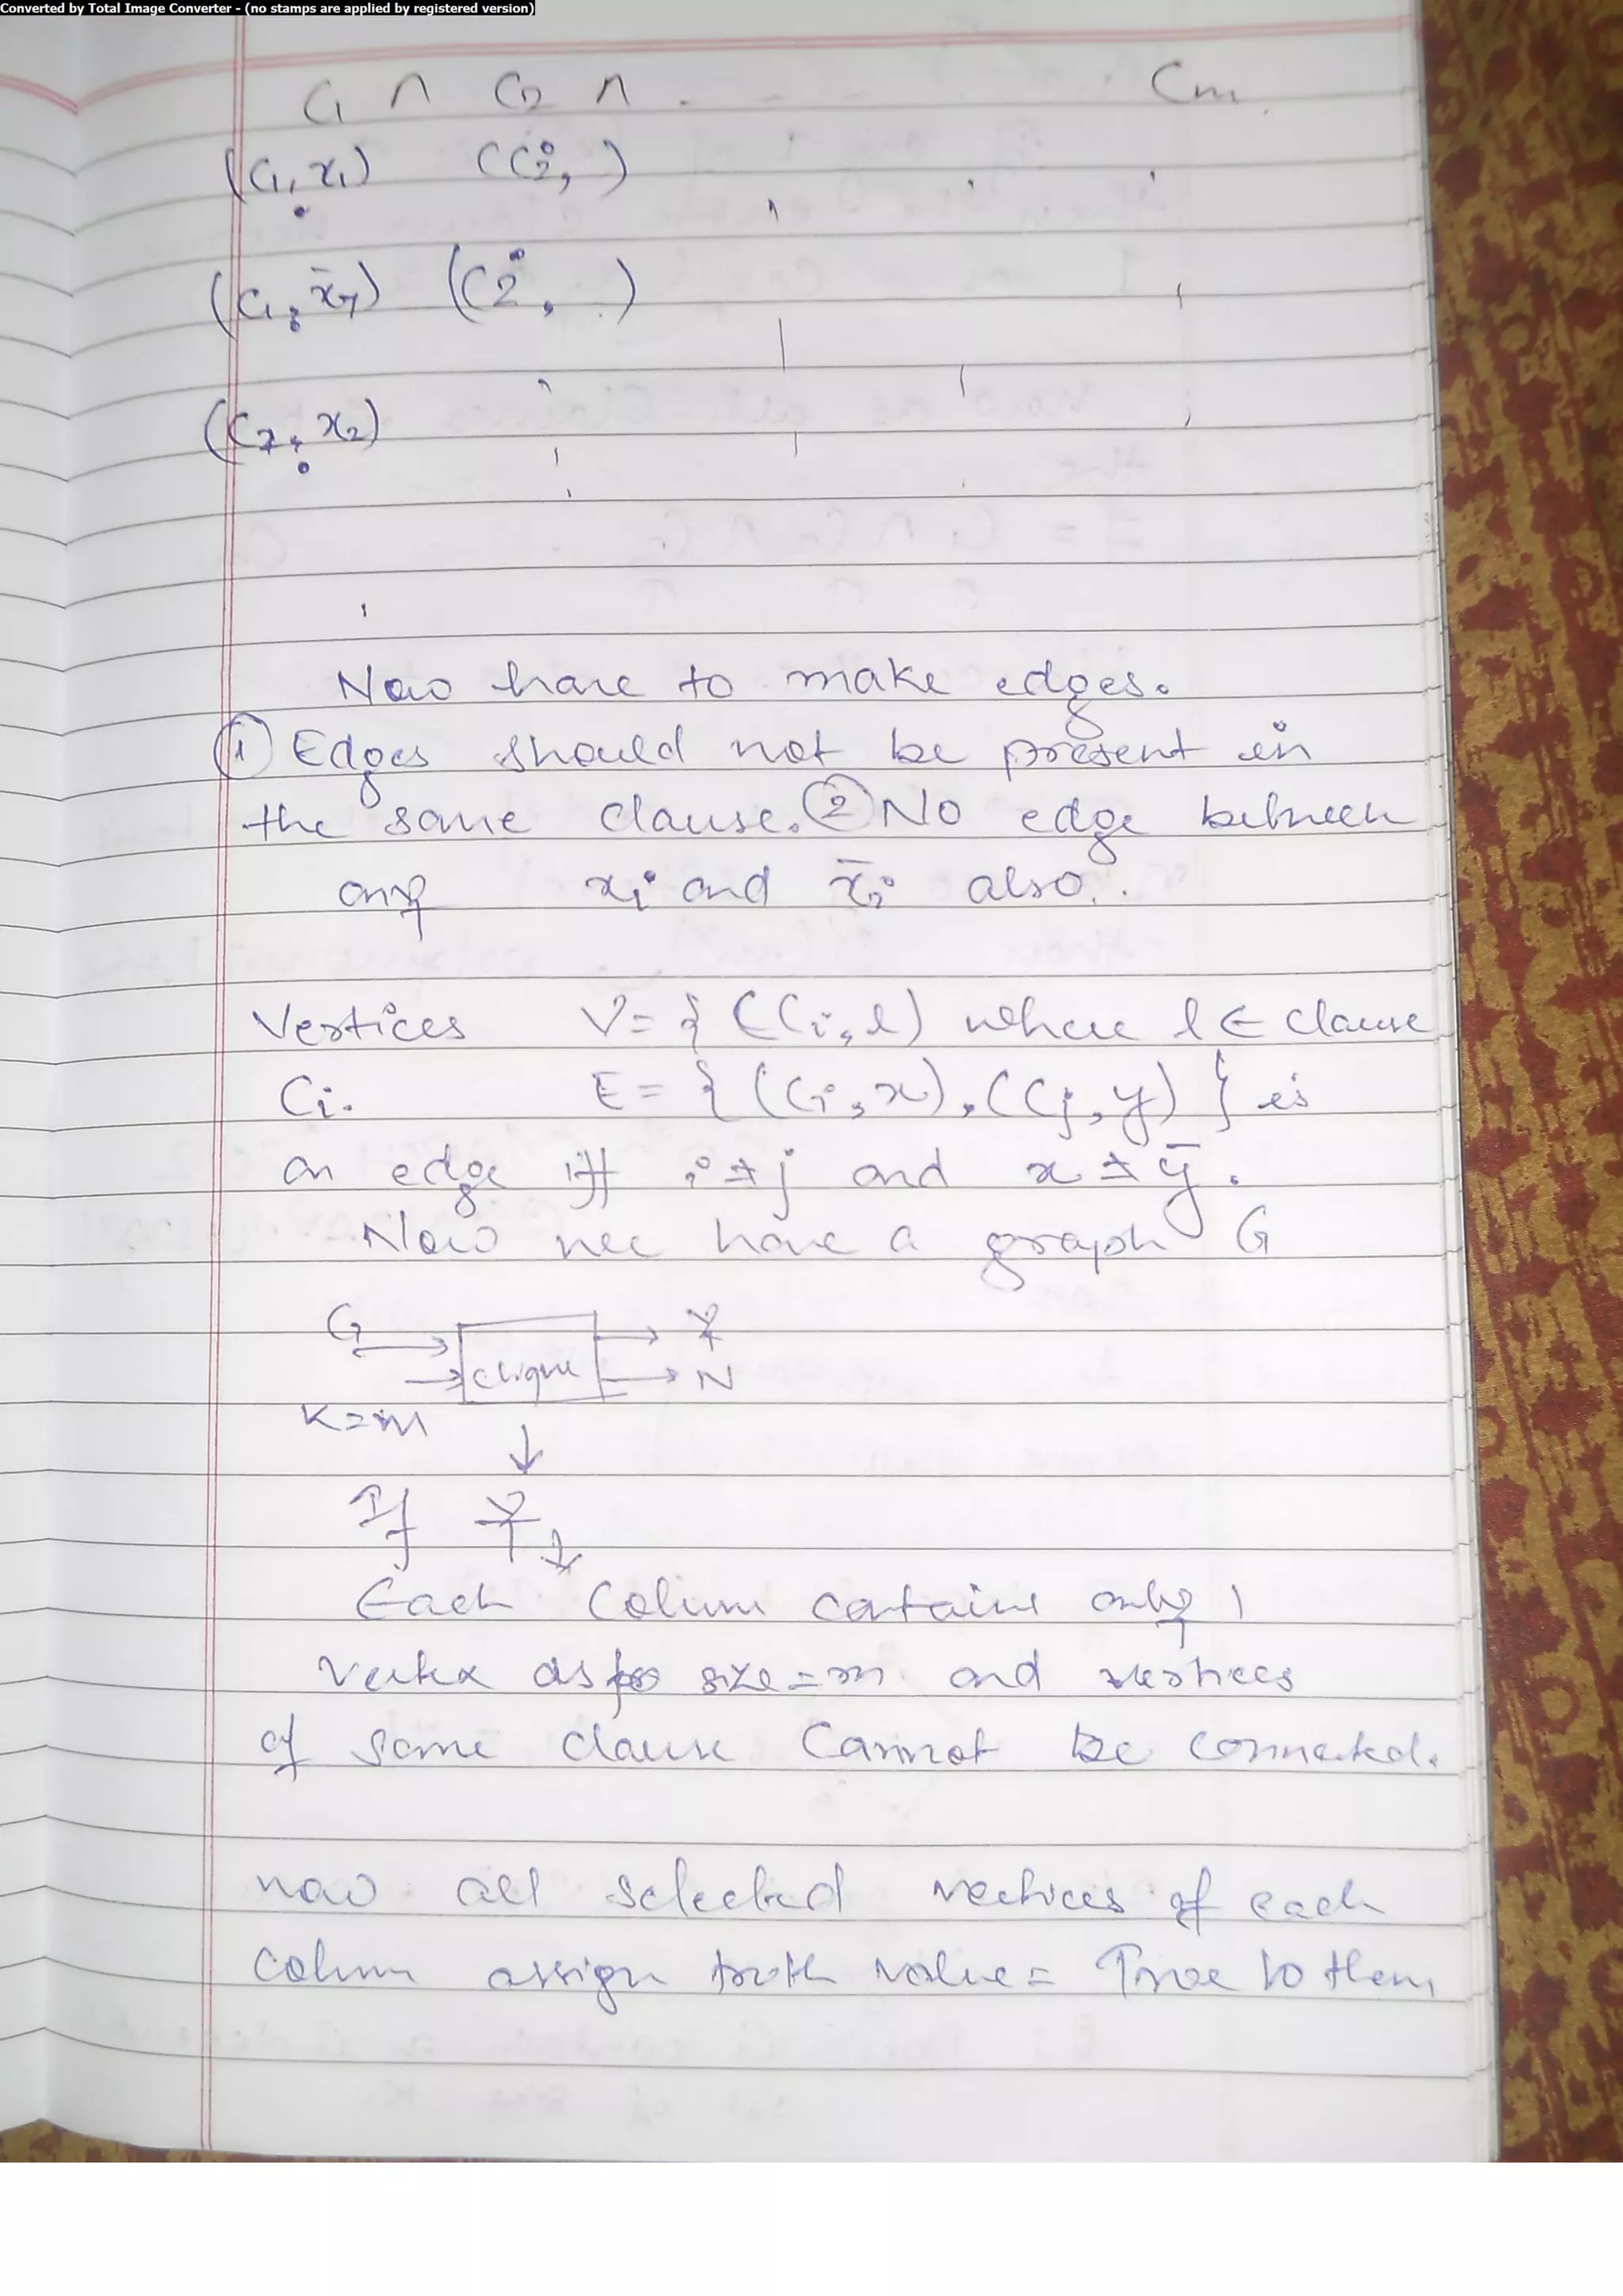 Converted by Total Image Converter - (no stamps are applied by registered version)
C1 ∧ C2 ∧ . - - Cm
(C1, x1) (C2, )
(C1, x̄7) (C2, )
(C1, x2)
Now have to make edges.
① Edges should not be present in
the same clause. ② No edge between
any xi and x̄i also.
Vertices V = { (Ci, l) where l ∈ clause
Ci. E = { (Ci, x), (Cj, y) } is
an edge iff i ≠ j and x ≠ ȳ.
Now we have a graph G
G Y
clique N
K=m
↓
If Y
↓
Each Column contains only 1
Vertex as size = m and vertices
of same clause Cannot be connected.
now all selected vertices of each
column assign truth value = True to them